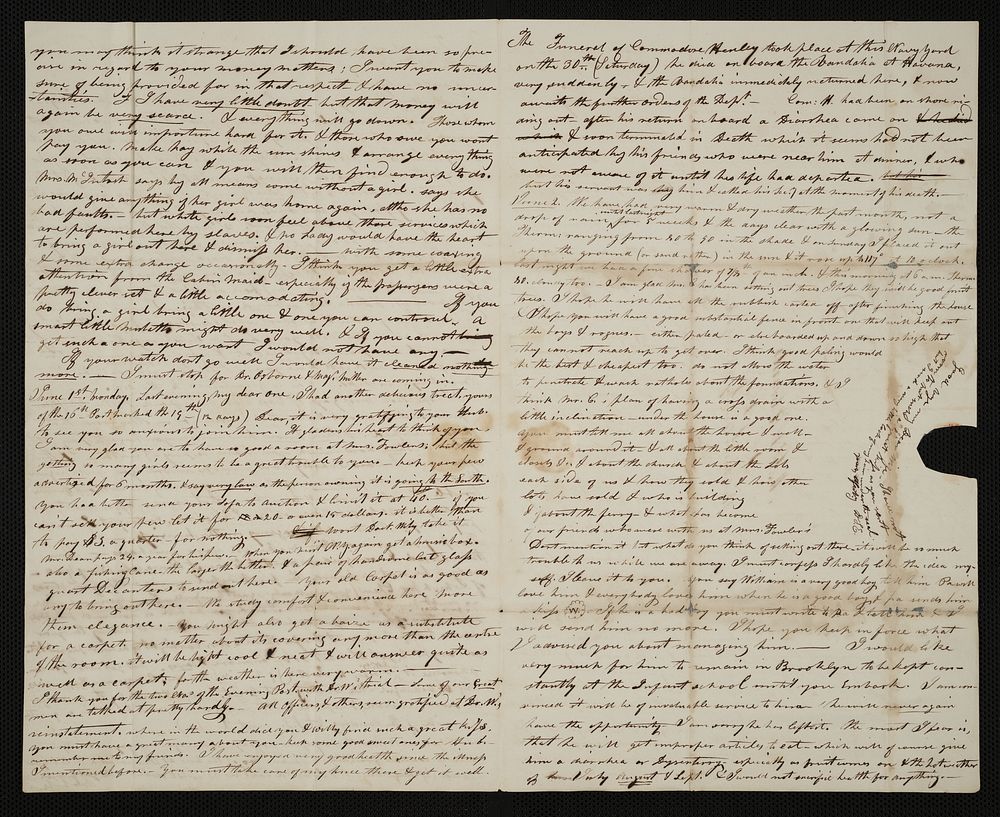 you may think it strange that I should have been so pre-
cise in regard to your money matters; I want you to make
sure of being provided for in that respect & have no uncer-
tainties. I have very little doubt but that money will
again be very scarce. & everything will go down. Those whom
you owe will importune hard for it, & those who owe you wont
pay you. make hay while the sun shines & arrange everything
as soon as you can & you will then find enough to do.
Mrs. McIntosh says by all means come without a girl. says she
would give anything if her girl was home again, altho she has no
bad faults. - but white girls soon feel above those services which
are performed here by slaves. & no lady would have the heart
to bring a girl out here & dismiss her. - with some coaxing
& some extra change occasionally. I think you get a little extra
attention from the Cabin Maid - especially if the passengers were a
pretty clever set & a little accomodating. If you
do bring a girl bring a little one & one you can controul. A
smart little Mulatto might do very well. & If you cannot
get such a one as you want I would not have any -
If your watch dont go well I would have it cleaned nothing
more. - I must stop for Dr. Osborne & Maj. Miller are coming in.
June 1st. Monday. Last evening, my dear one, I had another delicious treat, yours
of the 18th Postmarked the 19th (12 days) Dear, it is very gratifying to your Husb.
to see you so anxious to join him. It gladdens his heart to think of you.
I am very glad you are to have so good a room at Mrs. Fowlers, but the
getting so many girls seems to be a great trouble to you - keep your pew
advertized for 6 months. & say very low as the person owning it is going to the South.
You had better send your Sofa to auction & limit it at 40. if you
can't sell your pew let it for 20 or even 15 dollars. it is better than
to pay $3, a quarter for nothing. Wont Doct Kirby take it
Mr. Dean pays 24. a year for his pew. When you want OK again get a
- also a fishing Cane. the larger the better. & a pair of handsome Cut glass
quart Decanters to send out here. Your old Carpet is as good as
any to bring out here. - We study comfort & convenience here more
than elegance. You might also get a baize as a substitute
for a carpet. no matter about its covering any more than the centre
of the room. it will be light cool & neat & will answer quite as
well as a carpet, for the weather is here very
I thank you for the two Nos. of the Evening Post with Dr. W's trial - Some of our Great
men are talked at pretty hardy. - All officers & others, seem gratified at Dr. W's
reinstatement. where in the world did you & Willy find such a great kiss,
you must have a great many about you. keep some good sweet ones for Husb -
remember me to my friends. I have enjoyed very good health since the illness
I mentioned before. - You must take care of my knee there & get it well.
The Funeral of Commodore Henley took place at this Navy Yard
on the 30th (Saturday) he died on board the Vandalia at Havana,
very suddenly. & the Vandalia immediately returned here, & now
awaits the further orders of the Dept. - Com: H. had been on shore ri-
ding out. after his return on board a Diarrhea came on
& soon terminated in Death which it seems had not been
anticipated by his friends who were near him at dinner, & who
were not aware of it until his life had departed.
but his servant was by him & called his at the moment of his death.
We have had very warm & dry weather the past month, not a
drop of rain until last night for 5 weeks & the days clear with a glowing sun - the
Therm: ranging from 80 to 90 in the shade & on Sunday I placed it out
upon the ground (or sand rather) in the sun & it rose up to 111° at 12 o'clock.
last night we had a fine shower of an inch. & this morning at 6 am - Therm:
80. cloudy too. - I am glad Mr. G has been setting out trees I hope they will be good fruit
trees. I hope he will have all the rubbish carted off after finishing the house
I hope you will have a good substantial fence in front one that will keep out
the boys & rogues - either paled or else boarded up and down so high that
they cannot reach up to get over. I think good paling would
be the best & cheapest too. do not allow the water
to penetrate & wash ratholes about the foundations. & I
think Mr. G's plan of having a cross drain with a
little inclination under the house is a good one
You must tell me all about the house & well -
& ground around it - & all about the little room &
closets &c. & about the church & about the Lots
each side of us & how they sold & how other
lots have sold & who is building
& about the ferry - & what has become
of our friends who were with us at Mrs. Fowler's
Dont mention it but what do you think of selling out there, it will be so much
trouble to us while we are away. I must confess I hardly like the idea my-
self. I leave it to you. you say William is a very good boy, tell him Pa will
love him & everybody loves him when he is a good boy & pa sends him
a kiss. (W) If he is a bad boy you must write to pa & tell him & I
will send him no more. I hope you keep in force what
I advised you about managing him. - I would like
very much for him to remain in Brooklyn to be kept con-
stantly at the Infant school until you Embark. I am con-
vinced it will be of invaluable service to him. he will never again
have the opportunity I am sorry he has left it. The most I fear is,
that he will get improper articles to eat - which will of course give
him a diarrhea or Dysentery especially as fruit comes on & the hot weather
of July August & Sept. I would not sacrifice health for anything. -